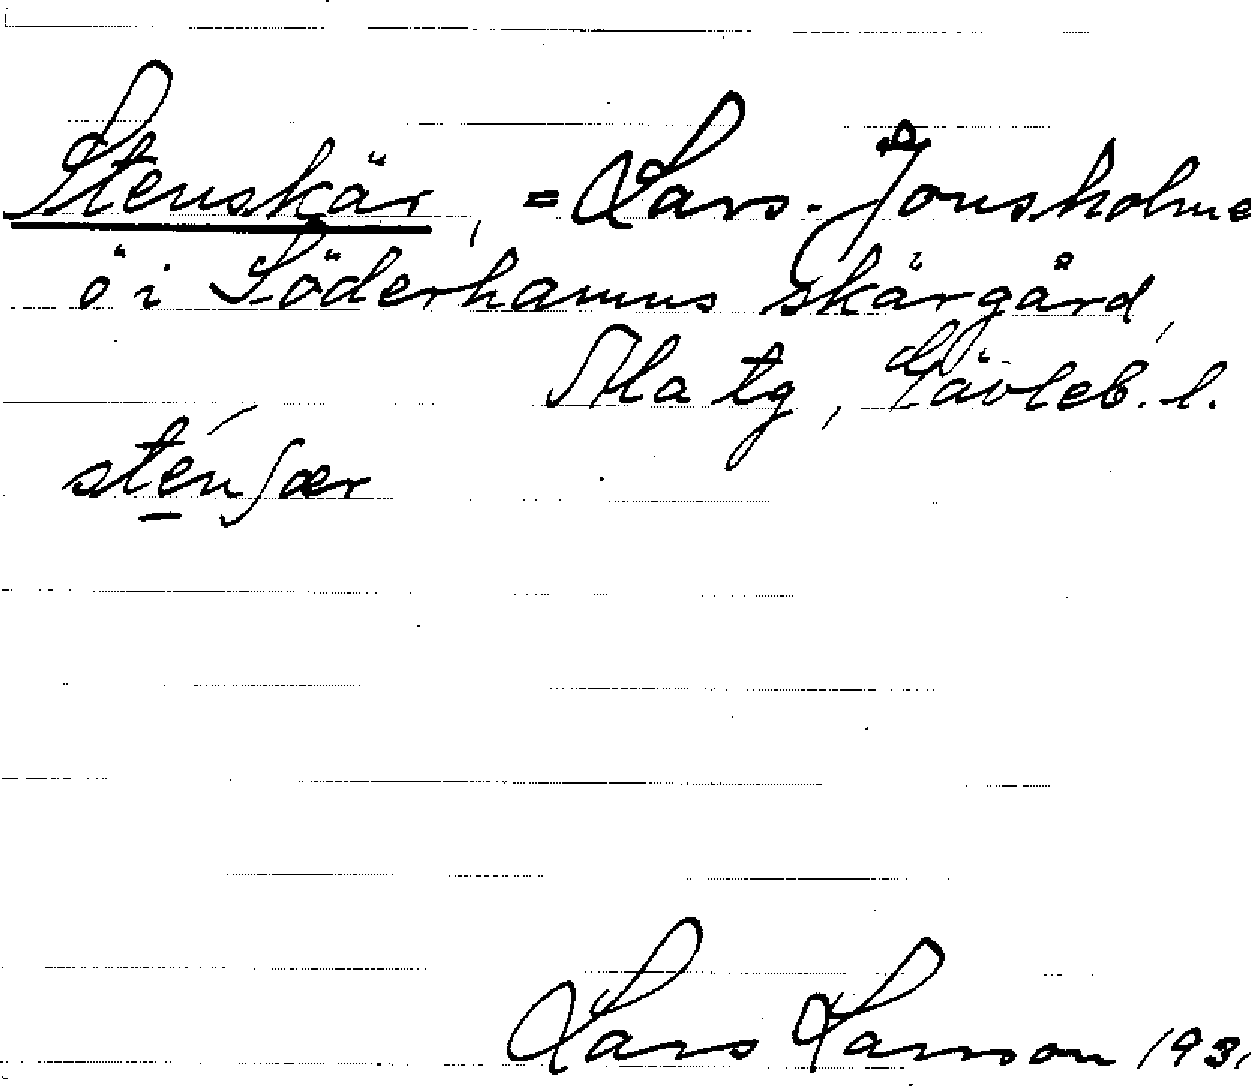 Stenskär, = Lars-Jonsholme
ö i Söderhamns skärgård,
Ala tg, Gävleb. l.
sténʃær
Lars Larsson 193